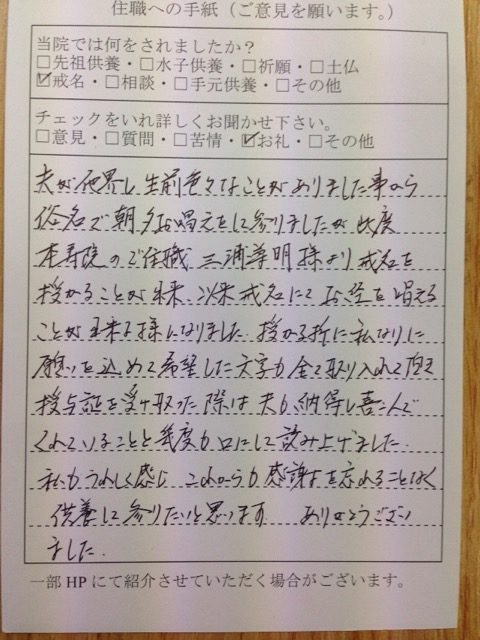 住職への手紙（ご意見を願います。）
当院では何をされましたか？
□先祖供養・□水子供養・□祈願・□土仏
☑戒名・□相談・□手元供養・□その他
チェックをいれ詳しくお聞かせ下さい。
□意見・□質問・□苦情・☑お礼・□その他
夫が他界し生前色々なことがありました事から
俗名で朝夕お唱えをして参りましたが此度
本寿院のご住職 三浦尊明様より戒名を
授かることが出来、以来戒名にてお経を唱える
ことが出来る様になりました。授かる折に私なりに
願いを込めて希望した文字も全て取り入れて頂き
授与証を受け取った際は夫も納得し喜こんで
くれていることと幾度も口にして読み上げました。
私もうれしく感じ これからも感謝を忘れることなく
供養して参りたいと思います ありがとうござい
ました.
一部HPにて紹介させていただく場合がございます。